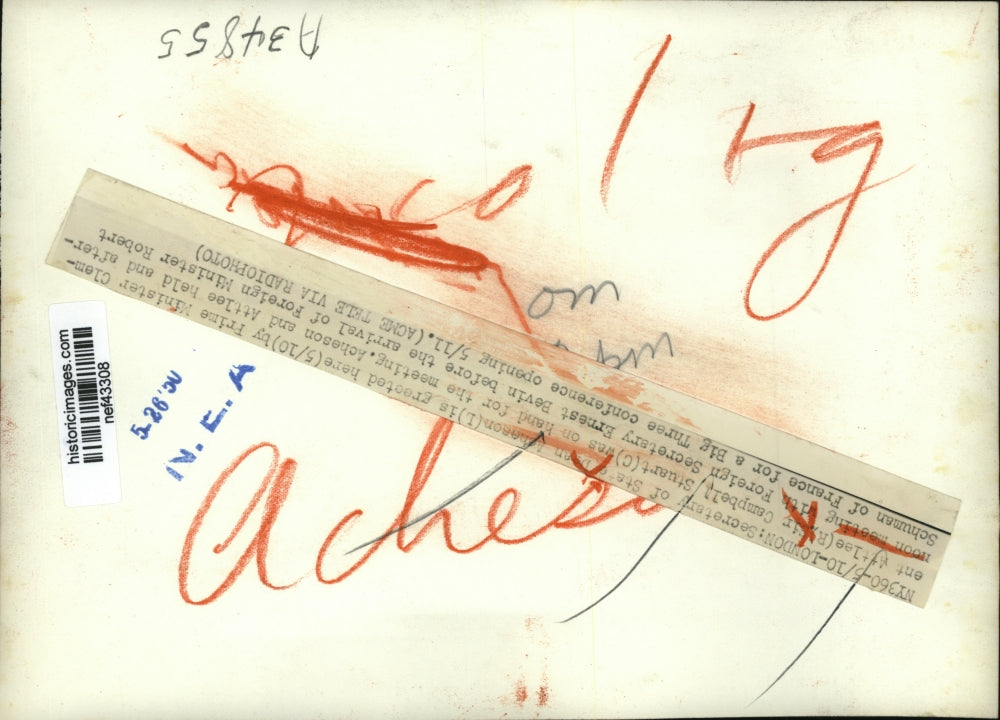 A34855
NY360-5/10-LONDON:Secretary of State Dean Acheson(L)is greeted here(5/10)by Prime Minister Clem-
ent Attlee(R).Sir Campbell Stuart(C)was on hand for the meeting.Acheson and Attlee held and after-
noon meeting with Foreign Secretary Ernest Bevin before the arrival of Foreign Minister Robert
Schuman of France for a Big Three conference opening 5/11.(ACME TELE VIA RADIOPHOTO)
historicimages.com
nef43308
5-26'50
N. E. A
Acheso